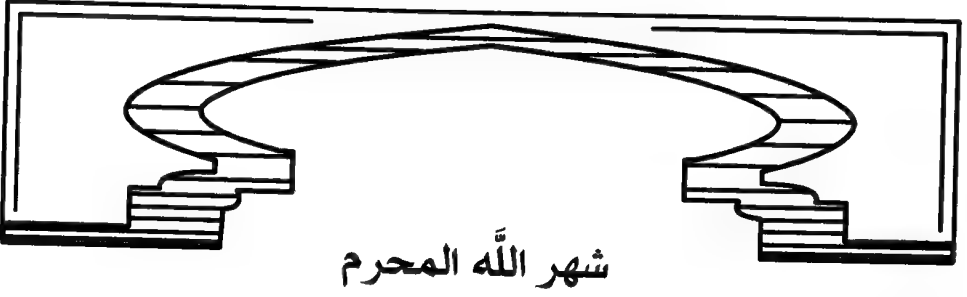 شهر اللَّه المحرم